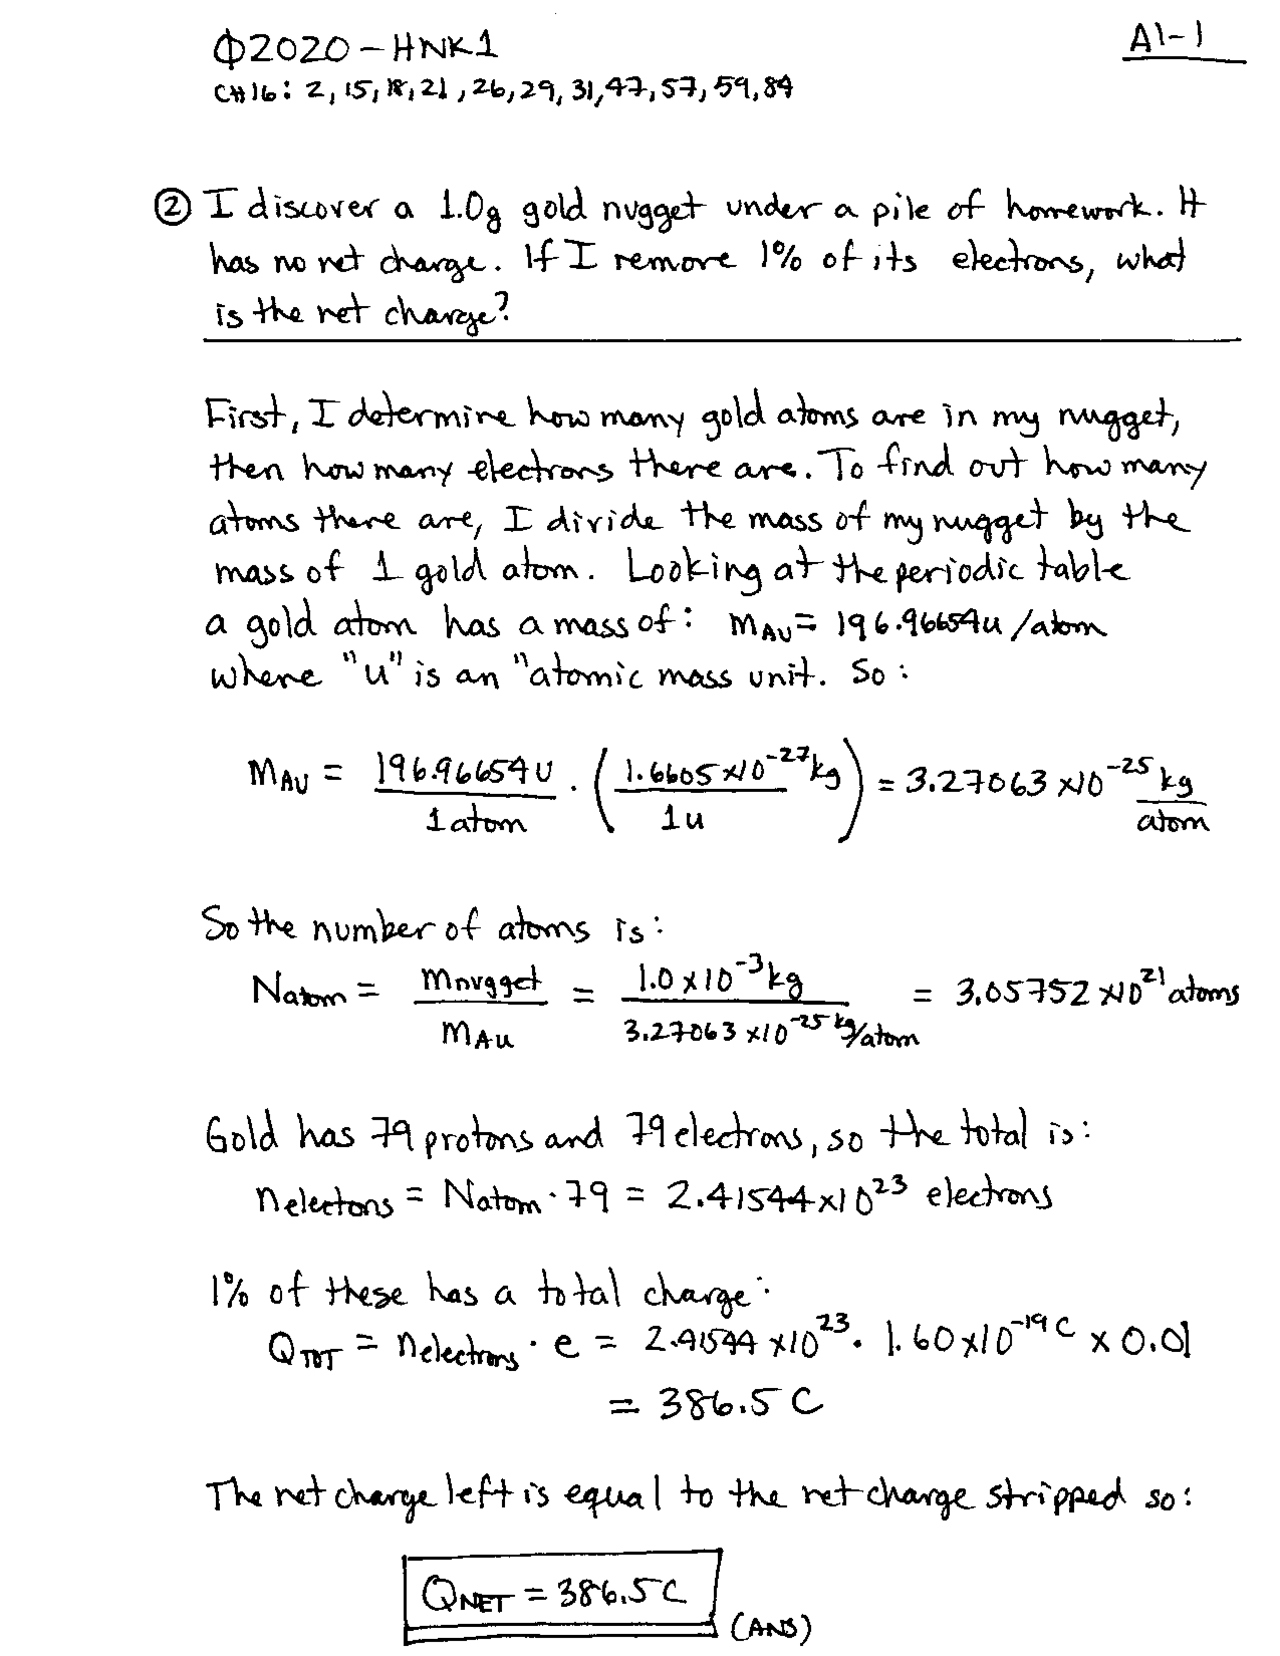 Φ2020 – HWK1
A1-1
CH16: 2, 15, 18, 21, 26, 29, 31, 47, 57, 59, 84
② I discover a 1.0g gold nugget under a pile of homework. It
has no net charge. If I remove 1% of its electrons, what
is the net charge?
First, I determine how many gold atoms are in my nugget,
then how many electrons there are. To find out how many
atoms there are, I divide the mass of my nugget by the
mass of 1 gold atom. Looking at the periodic table
a gold atom has a mass of: mAu = 196.96654u/atom
where "u" is an "atomic mass unit. So:
mAu = 196.96654u / 1 atom · (1.6605×10^-27 kg / 1u) = 3.27063×10^-25 kg/atom
So the number of atoms is:
Natom = mnugget / mAu = 1.0×10^-3 kg / 3.27063×10^-25 kg/atom = 3.05752×10^21 atoms
Gold has 79 protons and 79 electrons, so the total is:
nelectons = Natom · 79 = 2.41544×10^23 electrons
1% of these has a total charge:
QTOT = nelectrons · e = 2.41544×10^23 · 1.60×10^-19 C × 0.01
= 386.5 C
The net charge left is equal to the net charge stripped so:
QNET = 386.5 C
(ANS)